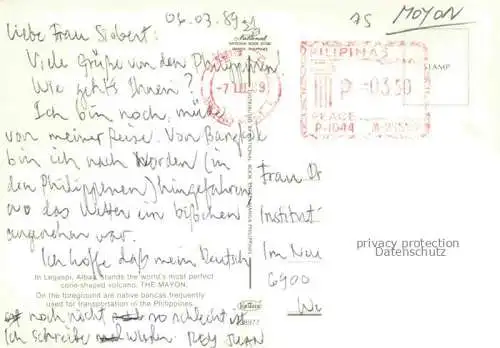 06.03.89
75 MOYON
Liebe Frau Siebert:
Viele Grüße von den Philippinen
Wie geht's Ihnen?
Ich bin noch müde
von meiner Reise. Von Bangkok
bin ich nach Norden (in
den Philippenen) hingefahren
wo das Wetter ein bißchen
angenehm war.
Ich hoffe daß mein Deutsch
In Legaspi, Albay stands the world's most perfect
cone-shaped volcano, THE MAYON.
On the foreground are native bancas frequently
used for transportation in the Philippines.
noch nicht so schlecht ist
Ich schreibe wieder. ROY JUAN
National
PILIPINAS
P 03.30
PEACE
P-1644
STAMP
Frau Dr
Institut
Im Neu
6900
privacy protection
Datenschutz